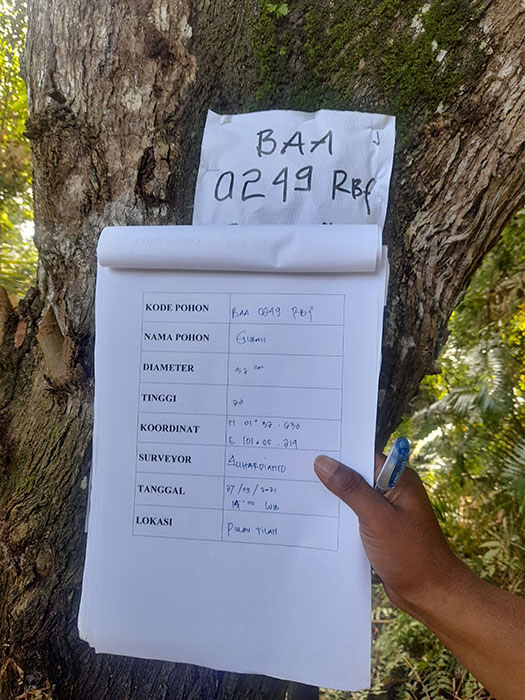 BAA
0249 RBf
KODE POHON BAA 0249 RBf
NAMA POHON
DIAMETER 52 cm
TINGGI 20
KOORDINAT N 01° 52. 630
E 101. 05. 219
SURVEYOR SUHARDIANTO
TANGGAL 27/09/2021
15.00 WIB
LOKASI PULAU TILAN